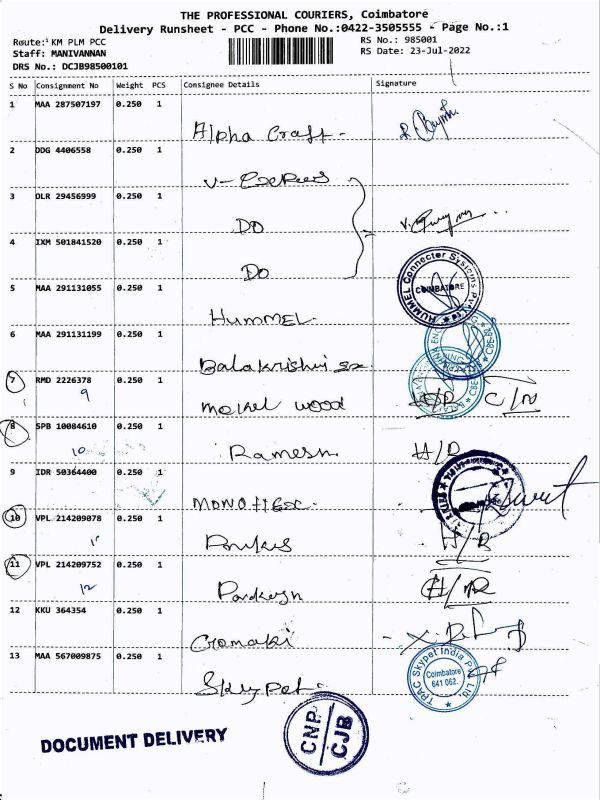 THE PROFESSIONAL COURIERS, Coimbatore
Delivery Runsheet - PCC - Phone No.:0422-3505555 - Page No.:1
Route: KM PLM PCC
RS No.: 985001
Staff: MANIVANNAN
RS Date: 23-Jul-2022
DRS No.: DCJB98500101
S No Consignment No Weight PCS Consignee Details Signature
1 MAA 287507197 0.250 1
Alpha Craft
2 DDG 4406558 0.250 1
V-
3 DLR 29456999 0.250 1
DO
4 IXM 501841520 0.250 1
DO
HUMMEL Connector Systems
COIMBATORE
5 MAA 291131055 0.250 1
HUMMEL
6 MAA 291131199 0.250 1
Balakrishni
7 RMD 2226378 0.250 1
9
wood
8 SPB 10084610 0.250 1
10
Ramesh H/R
9 IDR 50364400 0.250 1
10 VPL 214209078 0.250 1
H/R
11 VPL 214209752 0.250 1
12
H/R
12 KKU 364354 0.250 1
Cromaki
13 MAA 567009875 0.250 1
TPAC Skypet India Pvt. Ltd.
Coimbatore
641 062.
Skypet
DOCUMENT DELIVERY
CNP
CJB